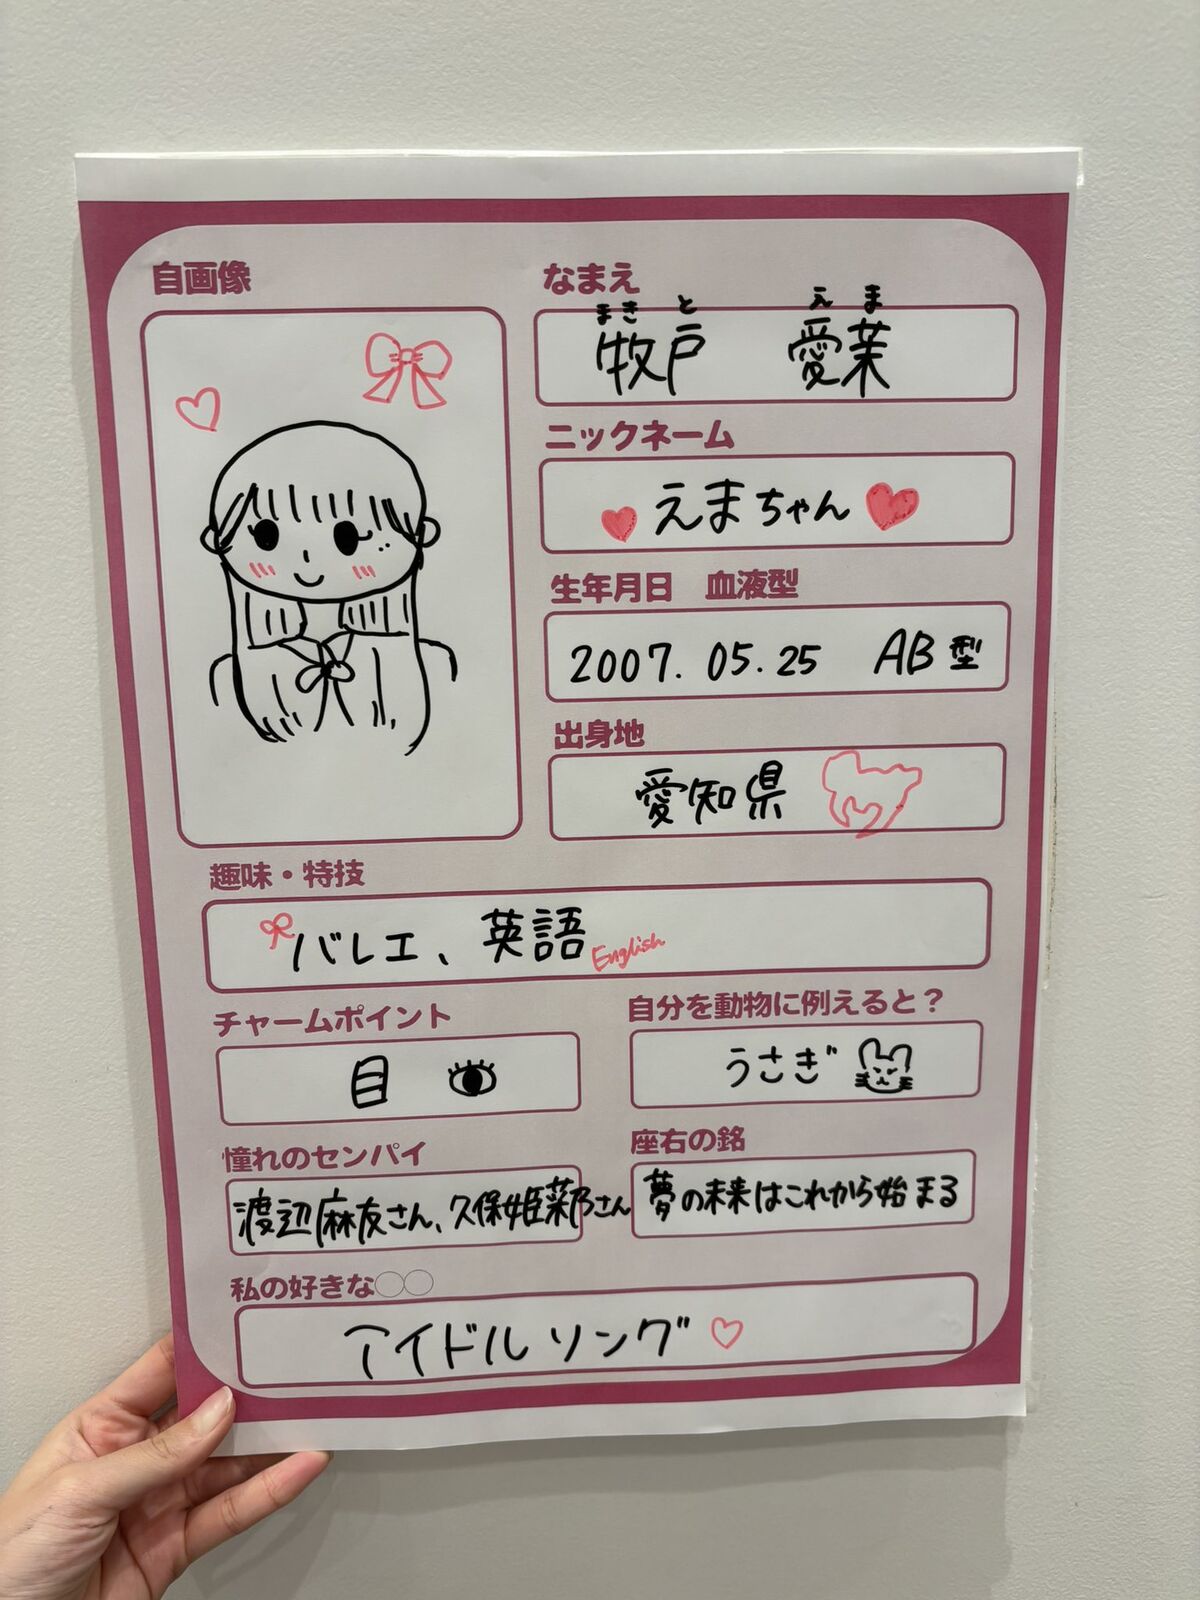 自画像
なまえ
まきと えま
牧戸 愛茉
ニックネーム
えまちゃん
生年月日 血液型
2007.05.25 AB型
出身地
愛知県
趣味・特技
バレエ、英語 English
チャームポイント
目
自分を動物に例えると？
うさぎ
憧れのセンパイ
渡辺麻友さん、久保姫菜乃さん
座右の銘
夢の未来はこれから始まる
私の好きな○○
アイドルソング